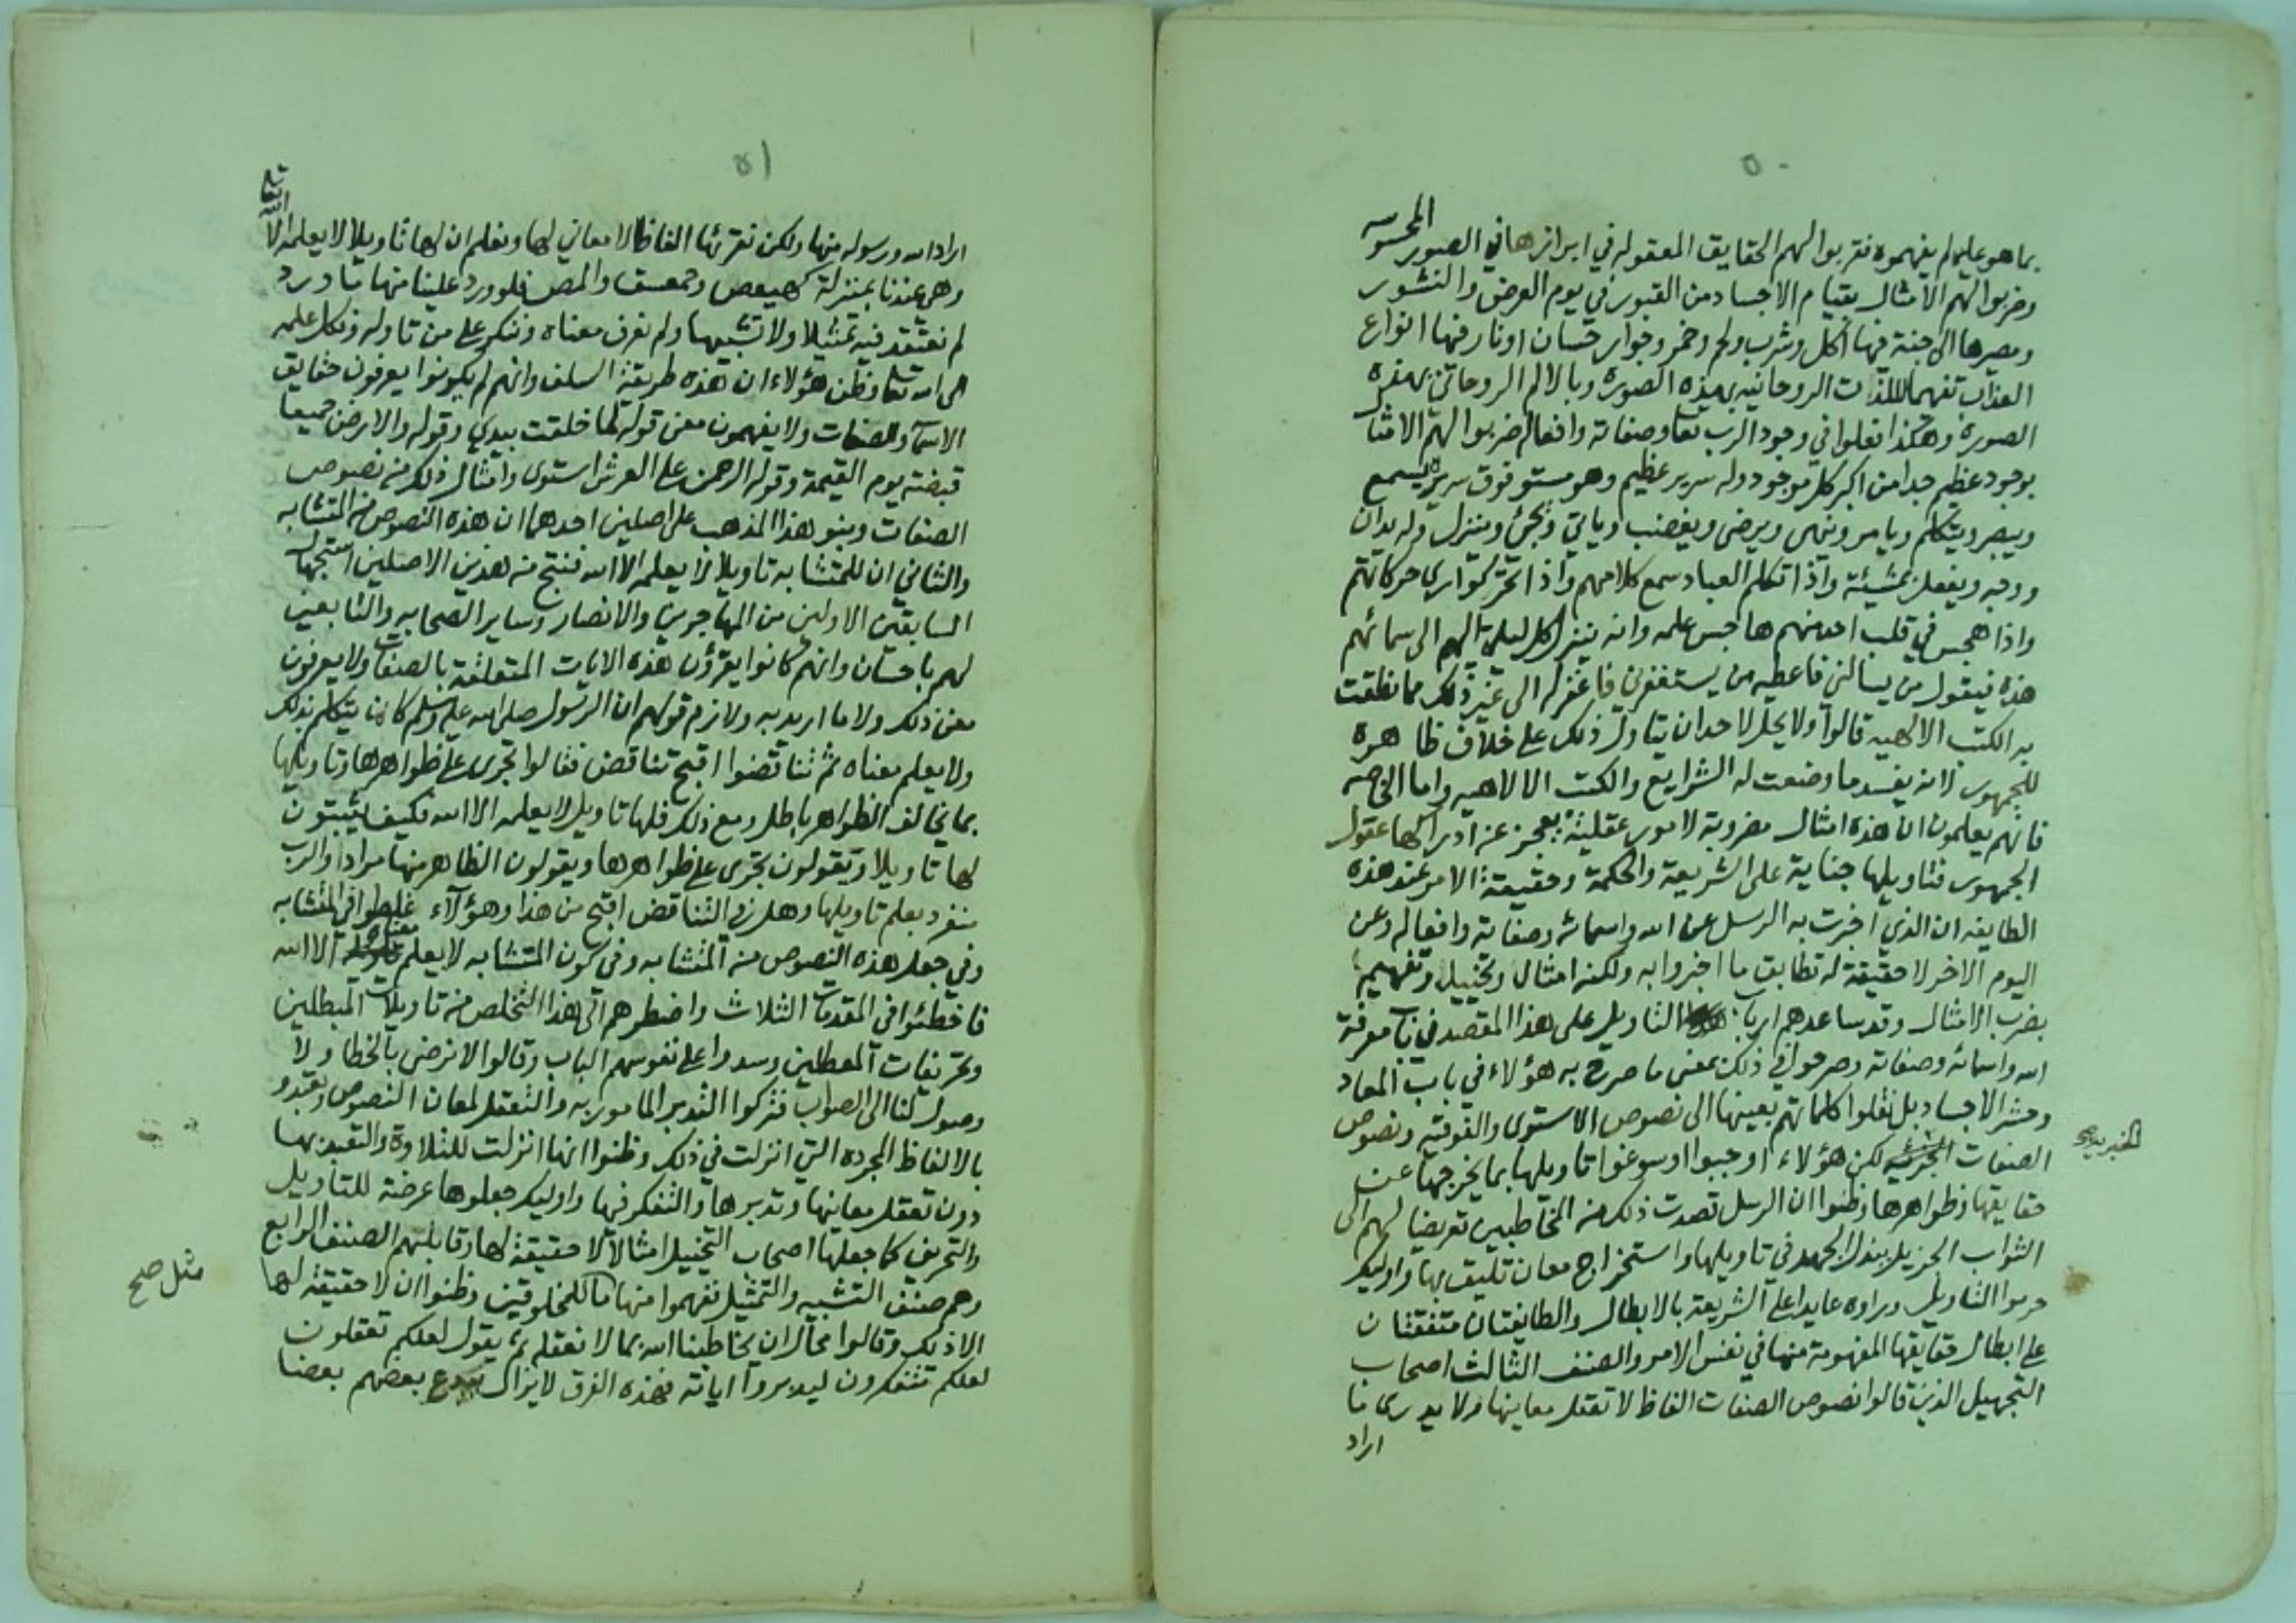 ٥٠
بما هو عليه لم يفهموه فقربوا لهم الحقايق المعقوله في ابرازها في الصور المحسوسه
وضربوا لهم الامثال بقيام الاجساد من القبور في يوم العرض والنشور
ومصيرها الى جنة فيها اكل وشرب ولحم وخمر وجوار حسان او نار فيها انواع
العذاب تفهيما للذات الروحانيه بهذه الصورة وبالالم الروحاني بهذه
الصورة وهكذا فعلوا في وجود الرب تعا وصفاته وافعاله ضربوا لهم الامثا
بوجود عظيم جدا من اكبر كل موجود وله سرير عظيم وهو مستو فوق سريره يسمع
ويبصر ويتكلم ويامر وينهى ويرضى ويغضب وياتي ويجئ وينزل وله يدان
ووجه ويفعل بمشيئة واذا تكلم العباد سمع كلامهم واذا تحركوا راى حركاتهم
واذا هجس في قلب احد منهم هاجس علمه وانه ينزل كل ليلة اليهم الى سمائهم
هذه فيقول من يسالني فاعطيه من يستغفرني فاغفر له الى غير ذلك مما نطقت
به الكتب الالهيه قالوا ولا يحل لاحد ان يتاول ذلك على خلاف ظاهره
للجمهور لانه يفسد ما وضعت له الشرايع والكتب الالاهيه واما الخاصه
فانهم يعلمون ان هذه امثال مضروبة لامور عقلية يعجز عن ادراكها عقول
الجمهور فتاويلها جناية على الشريعة والحكمة وحقيقة الامر عند هذه
الطايفه ان الذي اخبرت به الرسل عن الله واسمائه وصفاته وافعاله وعن
اليوم الاخر لا حقيقة له تطابق ما اخبروا به ولكنه امثال وتخييل وتفهيم
بضرب الامثال وقد ساعدهم ارباب التاويل على هذا المقصد في باب معرفة
الله واسمائه وصفاته وصرحوا في ذلك بمعنى ما صرح به هؤلاء في باب المعاد
وحشر الاجساد بل نقلوا كلماتهم بعينها الى نصوص الاستوى والفوقيه ونصوص
الصفات الخبريه لكن هؤلاء اوجبوا او سوغوا تاويلها بما يخرجها عن
حقايقها وظواهرها وظنوا ان الرسل قصدت ذلك من المخاطبين تعريضا لهم الى
الثواب الجزيل ببذل الجهد في تاويلها واستخراج معان تليق بها واوليك
حرموا التاويل وراوه عايدا على الشريعة بالابطال والطايفتان متفقتان
على ابطال حقايقها المفهومة منها في نفس الامر والصنف الثالث اصحاب
التجهيل الذين قالوا نصوص الصفات الفاظ لا تعقل معانيها ولا يدرى ما
اراد
٥١
اراد الله ورسوله منها ولكن نقرئها الفاظا لا معاني لها ونعلم ان لها تاويلا لا يعلمه الا الله تعا
وهي عندنا بمنزلة كهيعص وحمعسق والمص فلو ورد علينا منها ما ورد
لم نعتقد فيه تمثيلا ولا تشبيها ولم نعرف معناه وننكر على من تاوله ونكل علمه
الى الله تعا وظن هؤلاء ان هذه طريقة السلف وانهم لم يكونوا يعرفون حقايق
الاسماء والصفات ولا يفهمون معنى قوله لما خلقت بيدي وقوله والارض جميعا
قبضته يوم القيمة وقوله الرحمن على العرش استوى وامثال ذلك من نصوص
الصفات وبنو هذا المذهب على اصلين احدهما ان هذه النصوص من المتشابه
والثاني ان للمتشابه تاويلا لا يعلمه الا الله فنتج من هذين الاصلين استجهال
السابقين الاولين من المهاجرين والانصار وساير الصحابه والتابعين
لهم باحسان وانهم كانوا يقرؤن هذه الايات المتعلقة بالصفات ولا يعرفون
معنى ذلك ولا ما اريد به ولازم قولهم ان الرسول صلى الله عليه وسلم كان يتكلم بذلك
ولا يعلم معناه ثم تناقضوا اقبح تناقض فقالوا تجرى على ظواهرها وتاويلها
بما يخالف الظواهر باطل ومع ذلك فلها تاويل لا يعلمه الا الله فكيف يثبتون
لها تاويلا ويقولون تجرى على ظواهرها ويقولون الظاهر منها مراد والرب
منفرد بعلم تاويلها وهل في التناقض اقبح من هذا وهؤلآء غلطوا في المتشابه
وفي جعل هذه النصوص من المتشابه وفي كون المتشابه لا يعلم معناه الا الله
فاخطئوا في المقدمات الثلاث واضطرهم الى هذا التخلص من تاويلات المبطلين
وتحريفات المعطلين وسدوا على نفوسهم الباب وقالوا لا نرضى بالخطا ولا
وصول لنا الى الصواب فتركوا التدبر المامور به والتعقل لمعان النصوص وتعبدو
بالالفاظ المجرده التي انزلت في ذلك وظنوا انها انزلت للتلاوة والتعبد بها
دون تعقل معانيها وتدبرها والتفكر فيها واوليك جعلوها عرضة للتاويل
والتحريف كما جعلها اصحاب التخييل امثالا لا حقيقة لها وقابلهم الصنف الرابع
وهم صنف التشبيه والتمثيل ففهموا منها ما للمخلوقين وظنوا ان لا حقيقة لها
مثل صح
الا ذلك وقالوا محال ان يخاطبنا الله بما لا نعقله ثم يقول لعلكم تعقلون
لعلكم تتفكرون ليدبروا اياته فهذه الفرق لا يزال يبدع بعضهم بعضا